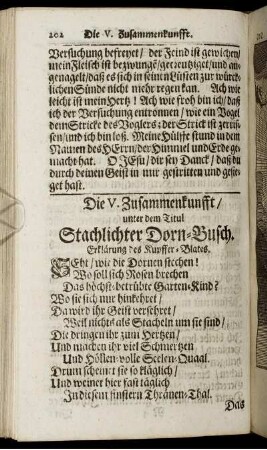 202 Die V. Zusammenkunfft.
Versuchung befreyet/ der Feind ist gewichen/
mein Fleisch ist bezwungē/gecreutziget/und an-
genagelt/daß es sich in seinen Lüsten zur würck-
lichen Sünde nicht mehr regen kan. Ach wie
leicht ist mein Hertz! Ach wie froh bin ich/daß
ich der Versuchung entronnen/ wie ein Vogel
dem Stricke des Voglers; der Strick ist zerris-
sen/und ich bin loß. Meine Hülffe stund in dem
Namen des HErrn/der Himmel und Erde ge-
macht hat. O JEsu/ dir sey Danck/ daß du
durch deinen Geist in mir gestritten und gesie-
get hast.
Die V. Zusammenkunfft/
unter dem Titul
Stachlichter Dorn-Busch.
Erklärung des Kupffer-Blates.
SEht/ wie die Dornen stechen!
Wo soll sich Rosen brechen
Das höchst-betrübte Garten-Kind?
Wo sie sich nur hinkehret/
Da wird ihr Geist versehret/
Weil nichts als Stacheln um sie sind/
Die dringen ihr zum Hertzen/
Und machen ihr viel Schmertzen
Und Höllen-volle Seelen-Quaal.
Drum scheinet sie so kläglich/
Und weinet hier fast täglich
In diesem finstern Thränen-Thal.
Das